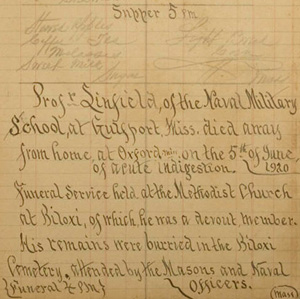 Supper 5 P.M.
Prof<sup>r</sup> Linfield, of the Naval Military
School, at Gulfport, Miss. died away
from home, at Oxford on the 5th of June
of acute indigestion. 1920
Funeral Service held at the Methodist Church
at Biloxi, of which, he was a devout member.
His remains were burried in the Biloxi
Cemetery, attended by the Masons and Naval
Funeral 4 P.M. Officers.
(Man)